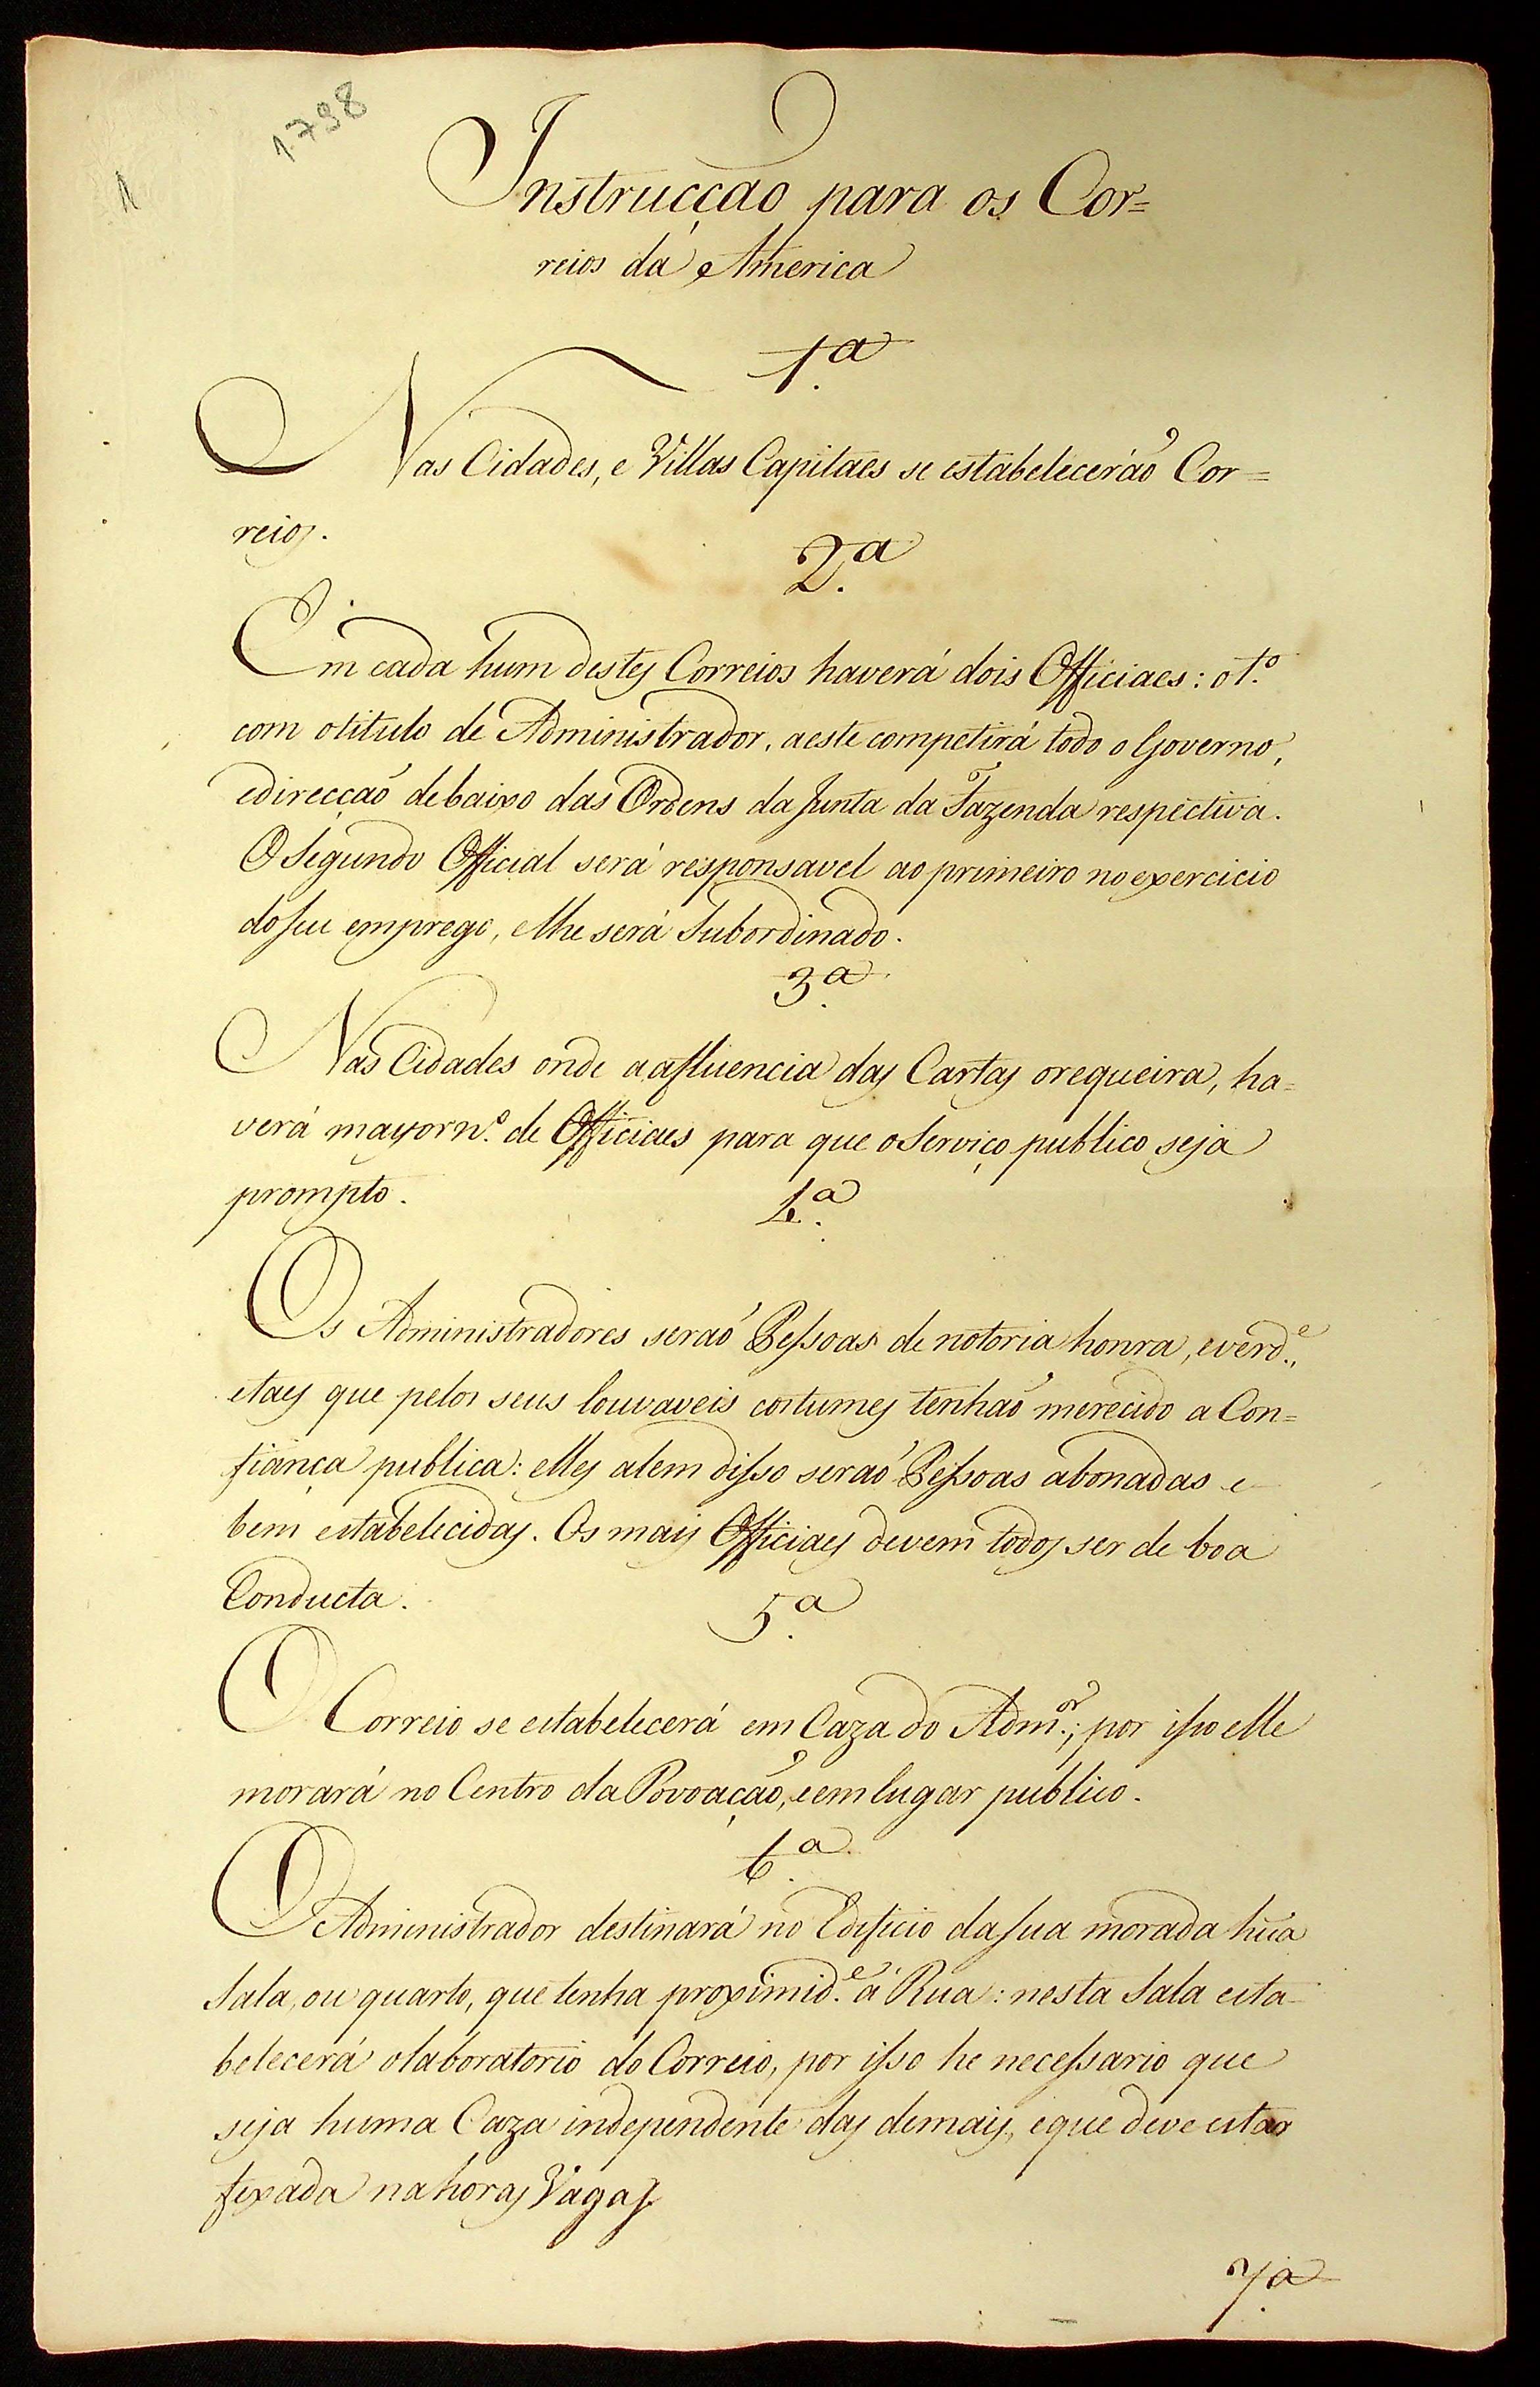 1798
1
Instrucção para os Cor=
reios da America
1.ª
Nas Cidades, e Villas Capitaes se estabelecerão Cor=
reios.
2.ª
Em cada hum destes Correios haverá dois Officiaes: o 1.º
com o titulo de Administrador, a este competirá todo o Governo,
e direcção debaixo das Ordens da Junta da Fazenda respectiva.
O Segundo Official será responsavel ao primeiro no exercicio
do seu emprego, e lhe será Subordinado.
3.ª
Nas Cidades onde a afluencia das Cartas o requeira, ha=
verá mayor n.º de Officiaes para que o Serviço publico seja
prompto.
4.ª
Os Administradores serão Pessoas de notoria honra, e verd.e,
e taes que pelos seus louvaveis costumes tenhão merecido a Con=
fiança publica: elles alem disso serão Pessoas abonadas e
bem estabelecidas. Os mais Officiaes devem todos ser de boa
Conducta.
5.ª
O Correio se estabelecerá em Caza do Adm.or; por isso elle
morará no Centro da Povoação, e em lugar publico.
6.ª
O Administrador destinará no Edificio da sua morada hũa
Sala, ou quarto, que tenha proximid.e á Rua: nesta Sala esta-
belecerá o laboratorio do Correio, por isso he necessario que
seja huma Caza independente das demais, e que deve estar
fexada na horas Vagas
7.ª